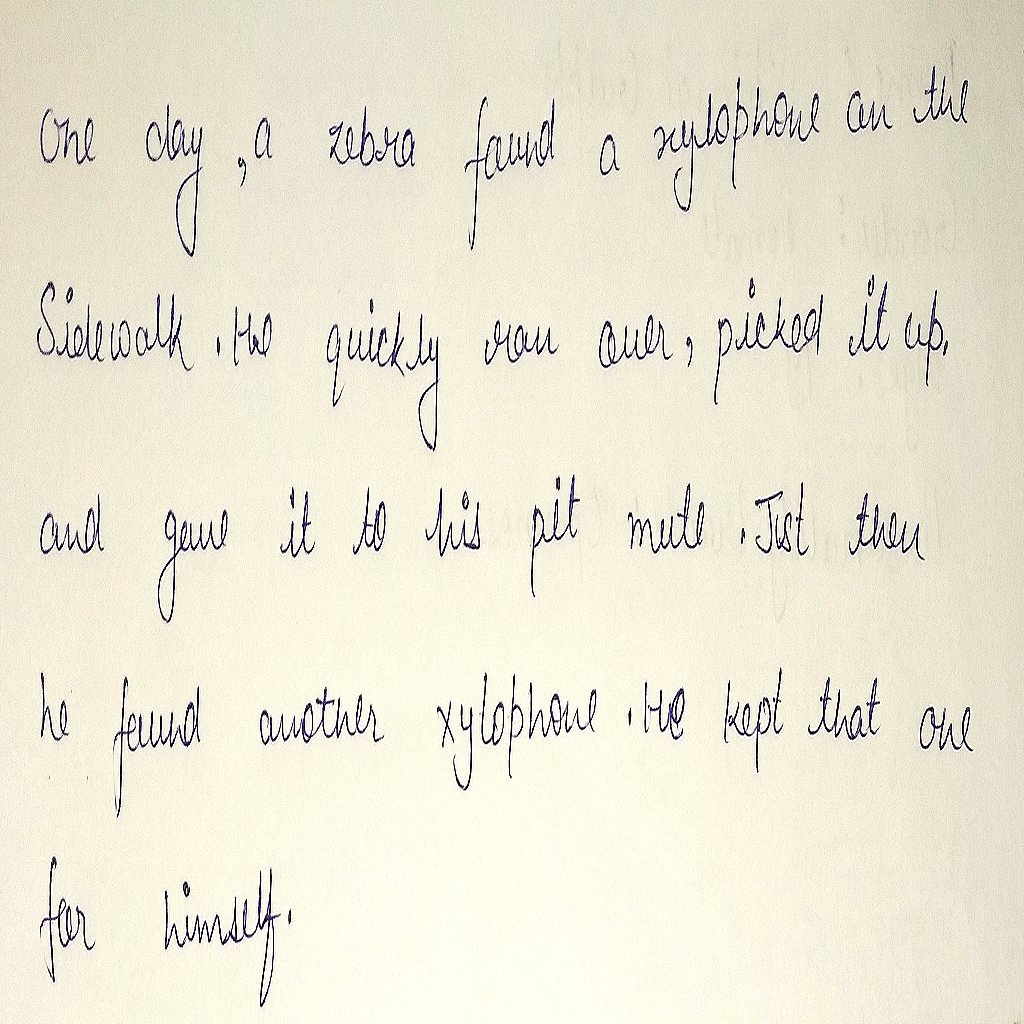 One day, a zebra found a xylophone on the
Sidewalk. He quickly ran over, picked it up.
and gave it to his pit mule. Just then
he found another xylophone. He kept that one
for himself.